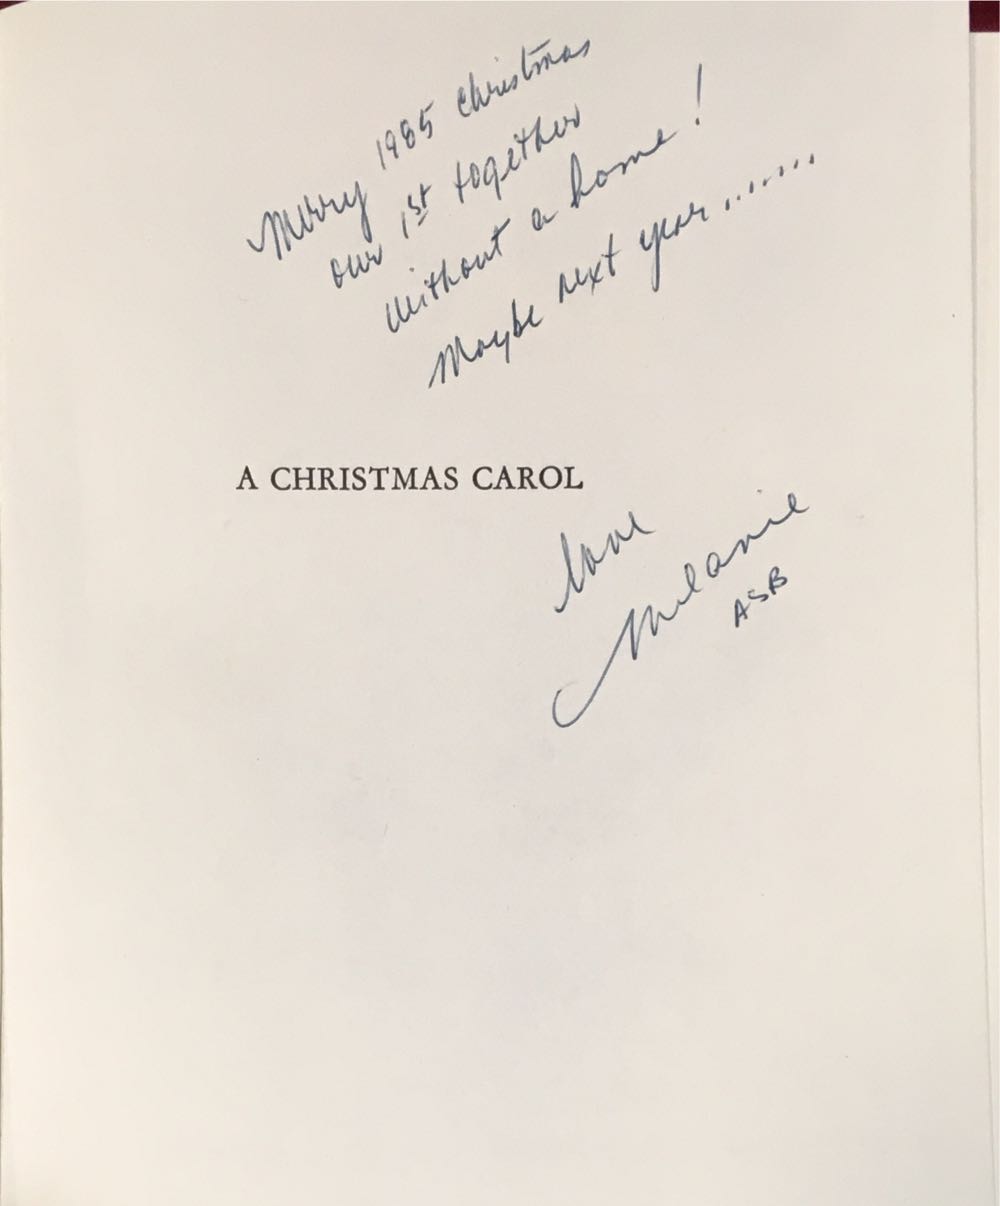 Merry 1985 Christmas
our 1st together
without a home!
Maybe next year.......
A CHRISTMAS CAROL
love
Melanie
ASB